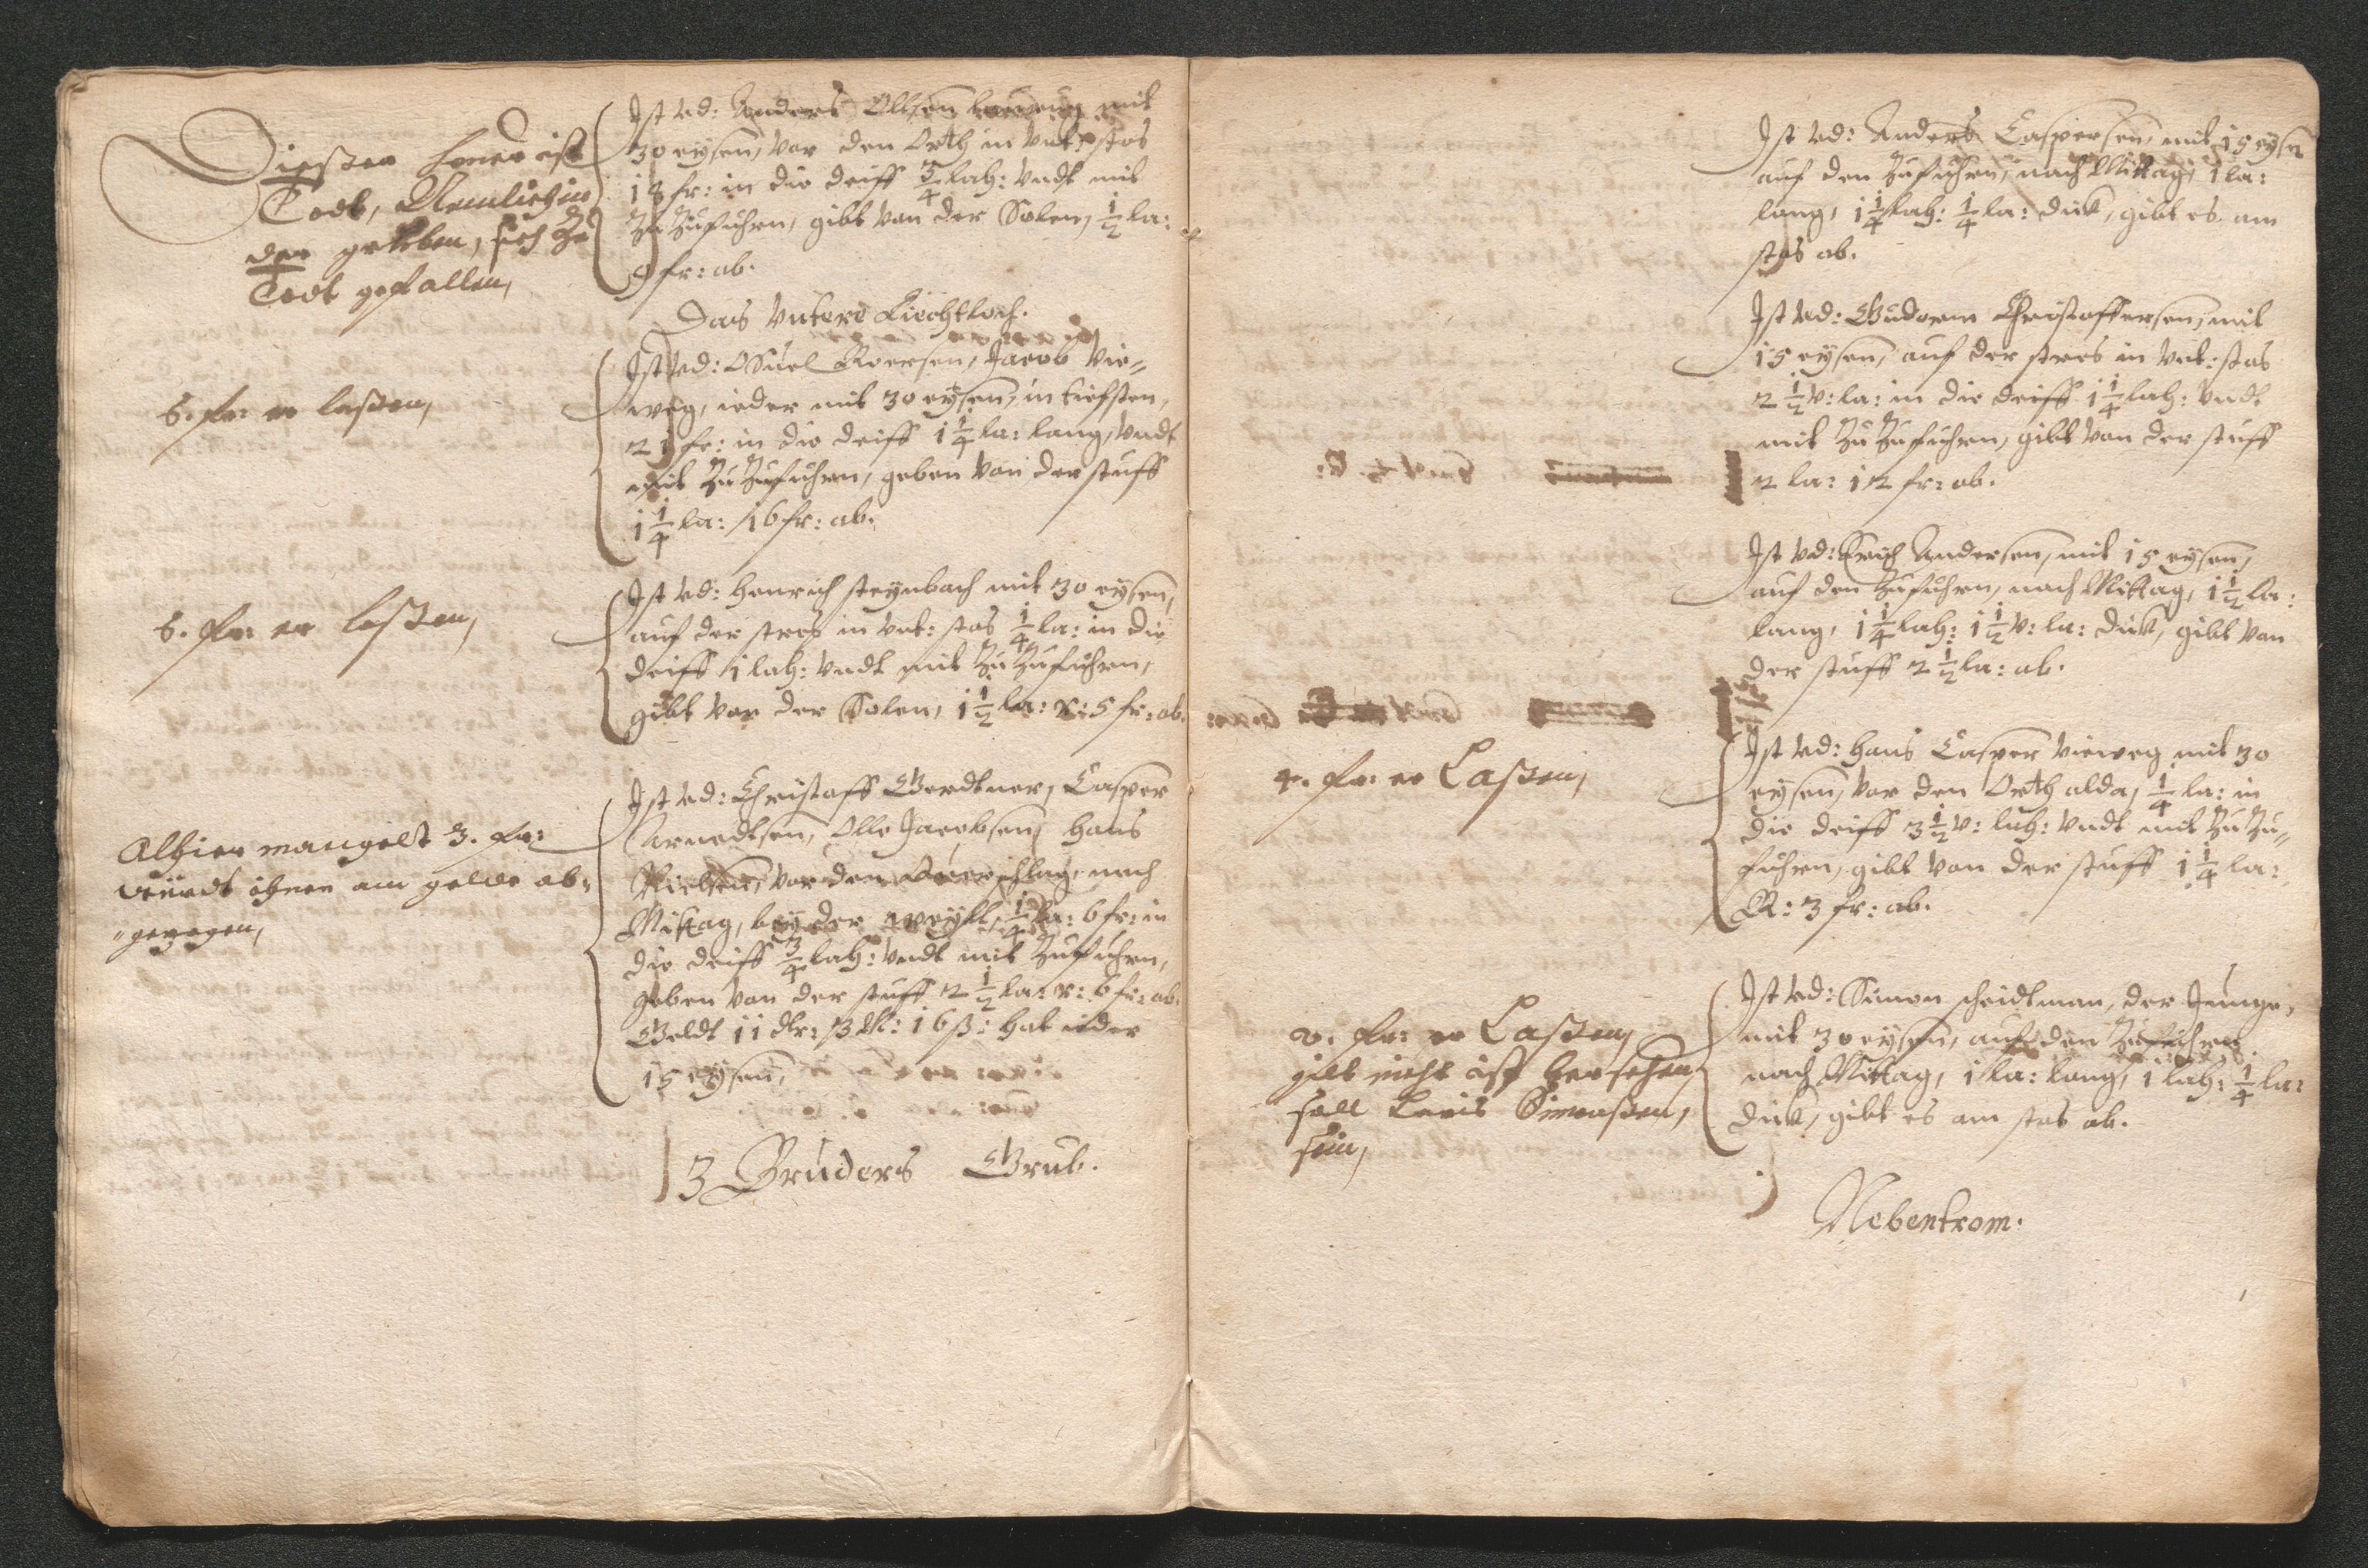 Diesser hauer ist
Todt, Nemlich in
der gruben, sich zu
Todt gefallen,
Ist vd: Anders Ollsen mit
30 eysen, vor den Orth in vnt: stos
18 fr: in die deiff 3/4 lah: vndt mit
Zu Zufuhren, gibt von der Solen, 1/2 la:
9 fr: ab.
Das vntere Liechtloch.
6. fr: er lassen,
Ist vd: Osuel Roersen, Jacob Vie„
weg, ieder mit 30 eysen, in tieffsten,
21 fr: in die deiff 1 1/4 la: lang, vndt
mit Zu Zufuhren, geben von der stuff
1 1/4 la: 16 fr: ab.
6. fr: er lassen,
Ist vd: Henrich steynbach mit 30 eysen,
auf der stros in vnt: stos 1/4 la: in die
deiff 1 lah: vndt mit Zu Zufuhren,
gibt von der Solen, 1 1/2 la: r: 5 fr: ab.
Alhier mangelt 3. fr:
würdt ihnen am gelde ab„
„gezogen,
Ist vd: Christoff Gerdtner, Casper
Arnedtsen, Olle Jacobsen, Hans
Nielsen, vor den Querschlag, nach
Mittag, bey der 1/4 la: 6 fr: in
die deiff 3/4 lah: vndt mit Zufuhren,
geben von der stuff 2 1/2 la: r: 6 fr: ab.
Geldt 11 dlr: 3 M: 16 ß: hat ieder
15 eysen,
3 Bruders Grub.
Ist vd: Anders Caspersen, mit 15 eysen
auf den Zufuhren, nach Mittag, 1 la:
lang, 1 1/4 lah: 1/4 la: dick, gibt es am
stos ab.
Ist vd: Gudorm Christoffersen, mit
15 eysen, auf der stros in vnt: stos
2 1/2 v: la: in die deiff 1 1/4 lah: vndt
mit Zu Zufuhren, gibt von der stuff
2 la: 12 fr: ab.
Ist vd: Erich Andersen, mit 15 eysen,
auf den Zufuhren, nach Mittag, 1 1/2 la:
lang, 1 1/4 lah: 1 1/2 v: la: dick, gibt von
der stuff 2 1/2 la: ab.
4. fr: er Lassen,
Ist vd: Hans Casper Vieweg mit 30
eysen, vor den Orth alda, 1/4 la: in
die deiff 3 1/2 v: lah: vndt mit Zu Zu„
fuhren, gibt von der stuff 1 1/4 la:
R: 3 fr: ab.
2. fr: er Lassen,
gilt nicht ist versehen
soll Laris Simonssen,
sein,
Ist vd: Simon scheidtman, der Junge,
mit 30 eysen, auf den Zufuhren
nach Mittag, 1 la: lang, 1 lah: 1/4 la:
dick, gibt es am stos ab.
Nebentrom.